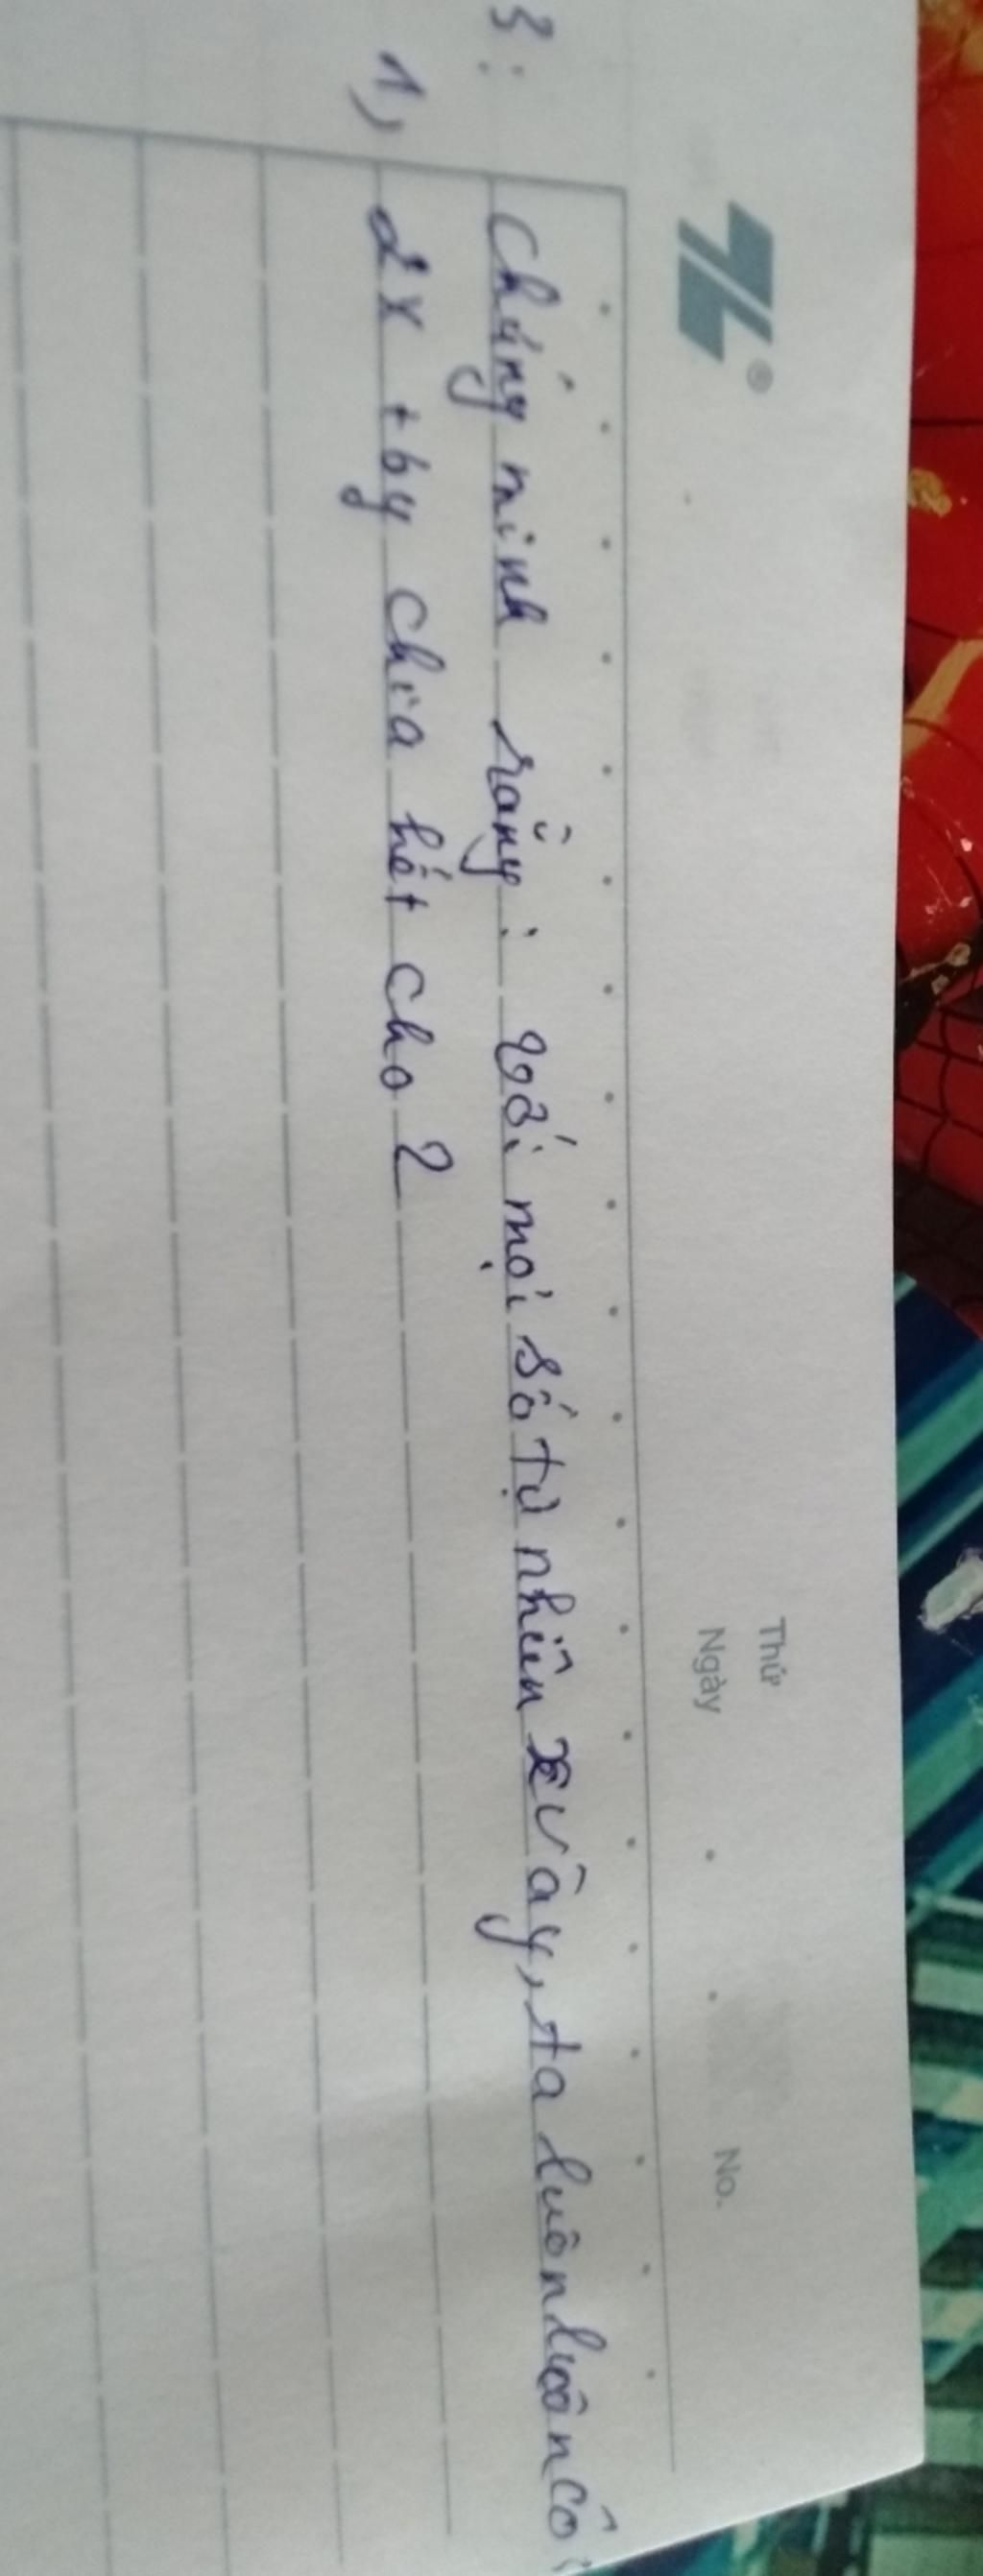 Thứ
Ngày
No.
3: Chứng minh rằng: với mọi số tự nhiên x vây, ta luôn luôn có
1, 2x + 6y chia hết cho 2